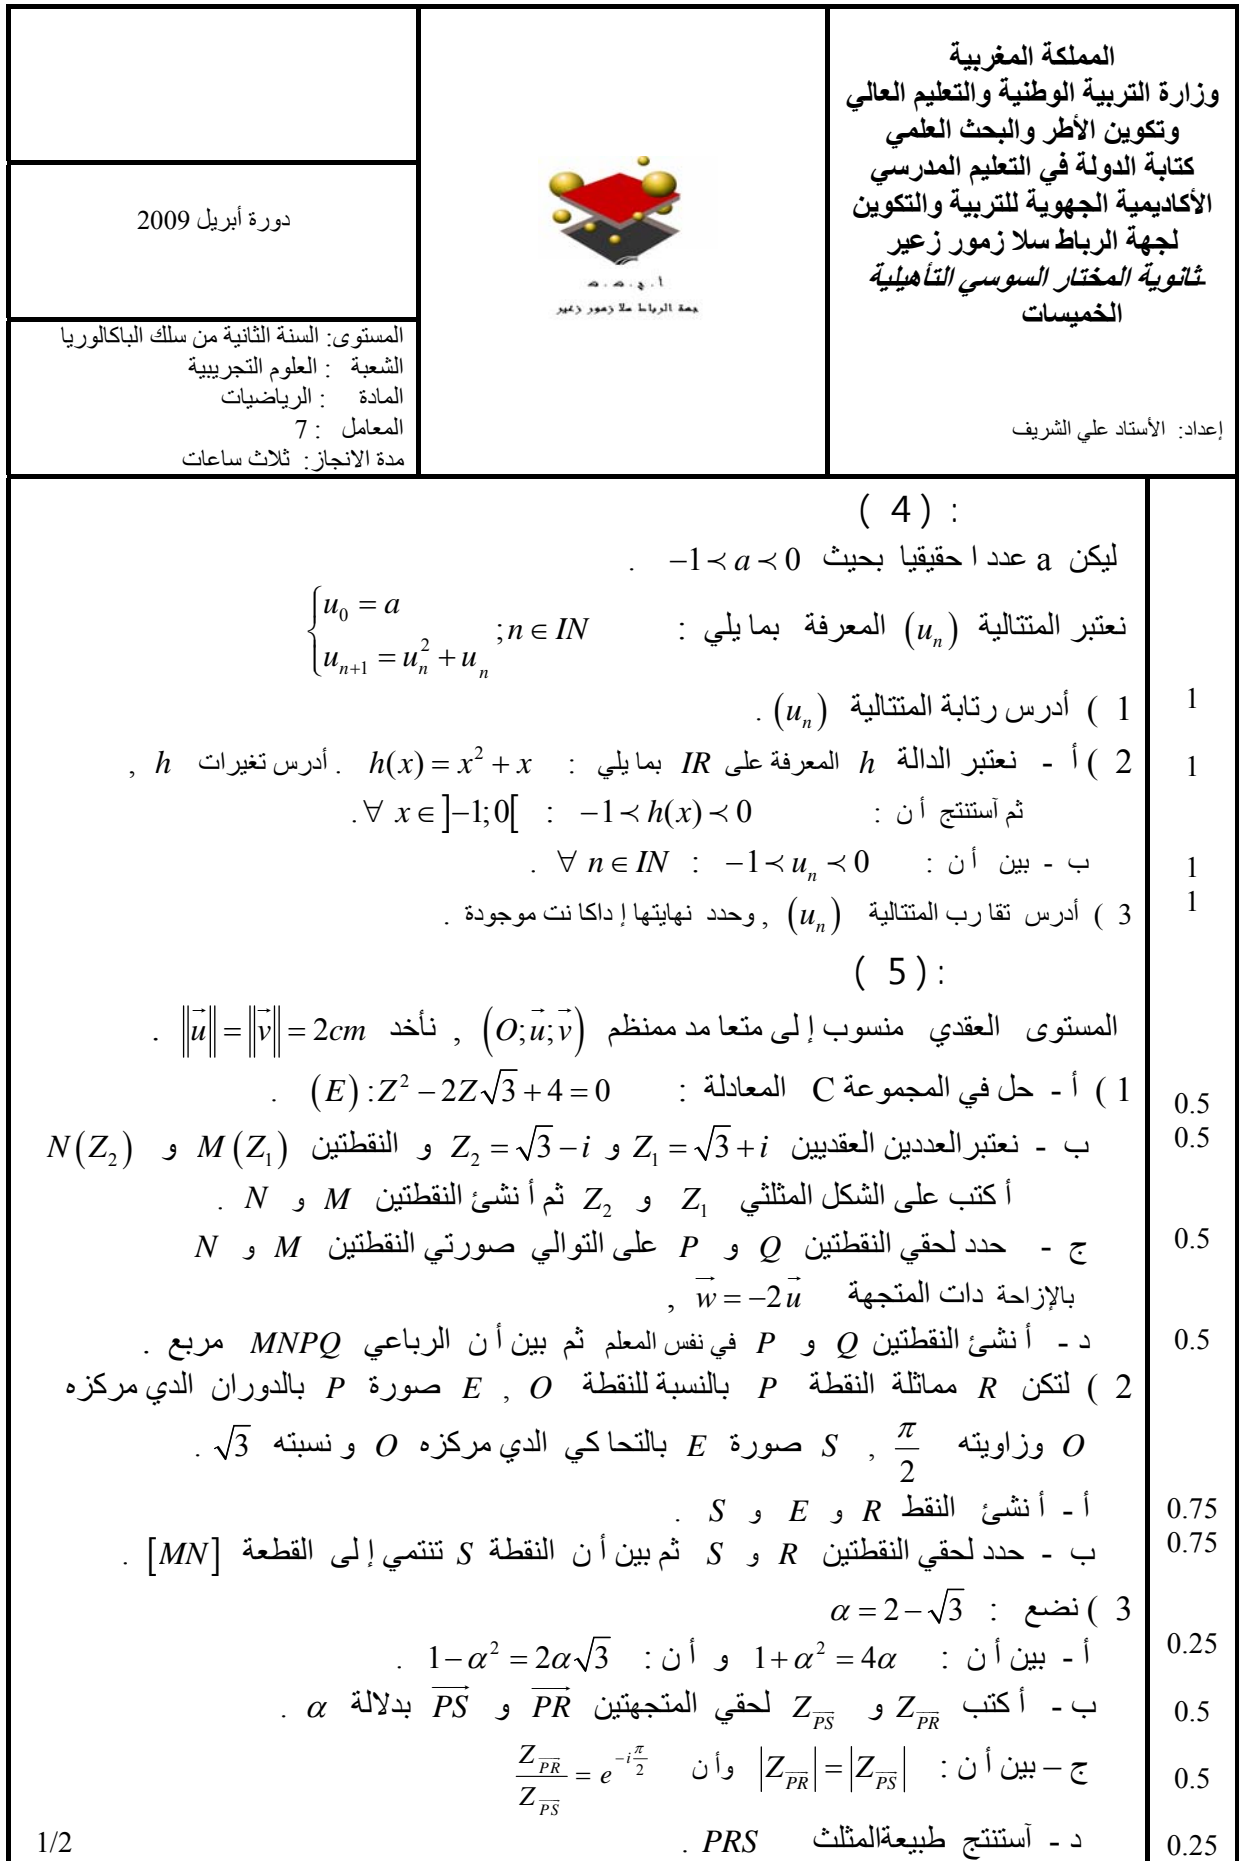 المملكة المغربية
وزارة التربية الوطنية والتعليم العالي
وتكوين الأطر والبحث العلمي
كتابة الدولة في التعليم المدرسي
الأكاديمية الجهوية للتربية والتكوين
لجهة الرباط سلا زمور زعير
ثانوية المختار السوسي التأهيلية
الخميسات
إعداد: الأستاد علي الشريف
جهة الرباط سلا زمور زغير
دورة أبريل 2009
المستوى: السنة الثانية من سلك الباكالوريا
الشعبة : العلوم التجريبية
المادة : الرياضيات
المعامل : 7
مدة الانجاز: ثلاث ساعات
( 4 ) :
ليكن a عدد ا حقيقيا بحيث −1 ≺ a ≺ 0 .
نعتبر المتتالية (u_n) المعرفة بما يلي : { u_0 = a ; u_{n+1} = u_n^2 + u_n ; n ∈ IN
1 ) أدرس رتابة المتتالية (u_n) . 1
2 ) أ - نعتبر الدالة h المعرفة على IR بما يلي : h(x) = x^2 + x . أدرس تغيرات h , 1
ثم آستنتج أ ن : ∀ x ∈ ]−1;0[ : −1 ≺ h(x) ≺ 0 .
ب - بين أ ن : ∀ n ∈ IN : −1 ≺ u_n ≺ 0 . 1
3 ) أدرس تقا رب المتتالية (u_n) , وحدد نهايتها إ داكا نت موجودة . 1
( 5 ) :
المستوى العقدي منسوب إ لى متعا مد ممنظم (O; \vec{u}; \vec{v}) , نأخد ‖\vec{u}‖ = ‖\vec{v}‖ = 2cm .
1 ) أ - حل في المجموعة C المعادلة : (E): Z^2 − 2Z√3 + 4 = 0 . 0.5
ب - نعتبرالعددين العقديين Z_1 = √3 + i و Z_2 = √3 − i و النقطتين M(Z_1) و N(Z_2) 0.5
أ كتب على الشكل المثلثي Z_1 و Z_2 ثم أ نشئ النقطتين M و N .
ج - حدد لحقي النقطتين Q و P على التوالي صورتي النقطتين M و N 0.5
بالإزاحة دات المتجهة \vec{w} = −2\vec{u} ,
د - أ نشئ النقطتين Q و P في نفس المعلم ثم بين أ ن الرباعي MNPQ مربع . 0.5
2 ) لتكن R مماثلة النقطة P بالنسبة للنقطة O , E صورة P بالدوران الدي مركزه
O وزاويته π/2 , S صورة E بالتحا كي الدي مركزه O و نسبته √3 .
أ - أ نشئ النقط R و E و S . 0.75
ب - حدد لحقي النقطتين R و S ثم بين أ ن النقطة S تنتمي إ لى القطعة [MN] . 0.75
3 ) نضع : α = 2 − √3
أ - بين أ ن : 1 + α^2 = 4α و أ ن : 1 − α^2 = 2α√3 . 0.25
ب - أ كتب Z_{\vec{PR}} و Z_{\vec{PS}} لحقي المتجهتين \vec{PR} و \vec{PS} بدلالة α . 0.5
ج – بين أ ن : |Z_{\vec{PR}}| = |Z_{\vec{PS}}| وأ ن Z_{\vec{PR}} / Z_{\vec{PS}} = e^{−iπ/2} 0.5
د - آستنتج طبيعةالمثلث PRS . 0.25
1/2